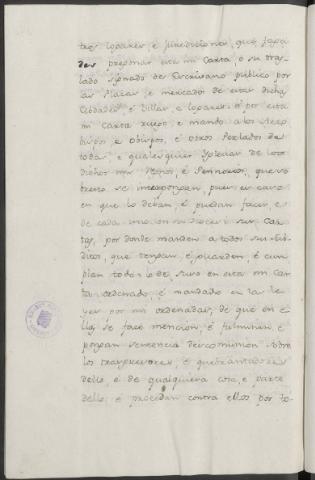 tros logares, é Jurediciones, que faga
des pregonar esta mi Carta, o su tras
lado signado de Escrivano publico por
las Plazas, e mercados de estas dichas
Cibdades, é Villas, e logares: é por esta
mi carta ruego, e mando a los Arzo
bispos e Obispos, é otros Perlados de
todas, e qualesquier Iglesias de los
dichos mis Regnos, é Señorios, que so
bre esto se interpongan, pues es caso
en que lo deban, é puedan facer, e
de cada uno en su Diocesi sus Car
tas, por donde manden a todos sus Sub
ditos, que tengan, é guarden, é cum
plan todo lo de suso en esta mi Car
ta ordenado, é mandado en la le
yes por mi ordenadas, de que en e
lla se face mencion, é fulminen, é
pongan sentencia de excomunion sobre
los transgresores, é quebrantadores
dello, é de qualquiera cosa, e parte
dello, é procedan contra ellos por to-